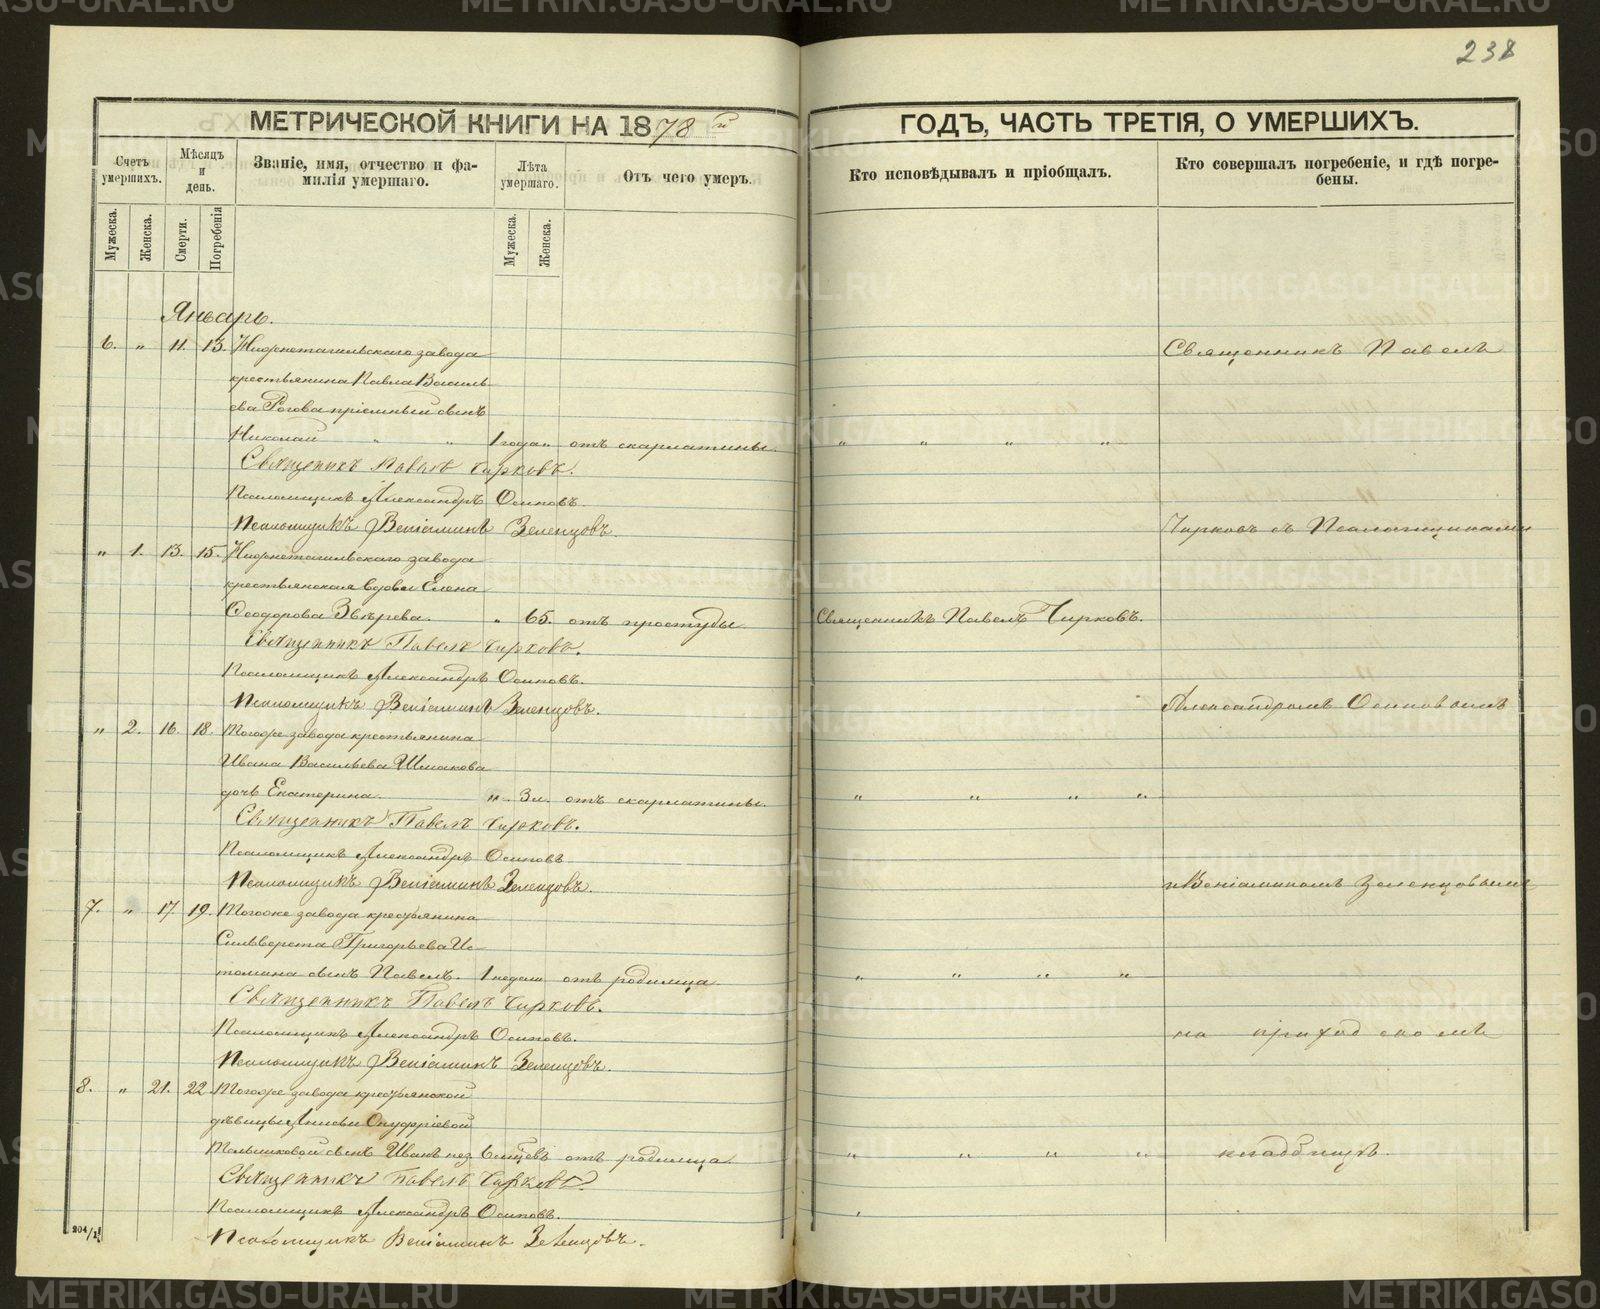 238
МЕТРИЧЕСКОЙ КНИГИ НА 1878й ГОДЪ, ЧАСТЬ ТРЕТІЯ, О УМЕРШИХЪ.
Счетъ умершихъ.
Мѣсяцъ и день.
Званіе, имя, отчество и фамилія умершаго.
Лѣта умершаго.
Отъ чего умеръ.
Кто исповѣдывалъ и пріобщалъ.
Кто совершалъ погребеніе, и гдѣ погребены.
Мужеска.
Женска.
Смерти.
Погребенія
Мужеска.
Женска.
Январь.
6. „ 11. 13. Нижнетагильскаго завода
крестьянина Павла Василь
ева Рогова пріемный сынъ
Николай „ „ 1 года „ отъ скарлатины. „ „ „ „
Священникъ Павелъ Чирковъ.
Псаломщикъ Александръ Осиповъ.
Псаломщикъ Веніаминъ Зеленцовъ.
„ 1. 13. 15. Нижнетагильскаго завода
крестьянская вдова Елена
Ѳеодорова Звѣрева. „ 65. отъ простуды Священникъ Павелъ Чирковъ.
Священникъ Павелъ Чирковъ.
Псаломщикъ Александръ Осиповъ.
Псаломщикъ Веніаминъ Зеленцовъ.
„ 2. 16. 18. Тогоже завода крестьянина
Ивана Васильева Шмакова
дочь Екатерина. „ 3 л. отъ скарлатины. „ „ „ „
Священникъ Павелъ Чирковъ.
Псаломщикъ Александръ Осиповъ
Псаломщикъ Веніаминъ Зеленцовъ.
7. „ 17 19. Тогоже завода крестьянина
Сильверста Григорьева Ис
томина сынъ Павелъ. 1 недели отъ родимца. „ „ „ „
Священникъ Павелъ Чирковъ.
Псаломщикъ Александръ Осиповъ.
Псаломщикъ Веніаминъ Зеленцовъ.
8. „ 21. 22. Тогоже завода крестьянской
дѣвицы Онуфріевой
сынъ Иванъ нез. 6 отъ родимца. „ „ „ „
Священникъ Павелъ Чирковъ.
Псаломщикъ Александръ Осиповъ.
Псаломщикъ Веніаминъ Зеленцовъ.
Священникъ Павелъ
Чирковъ съ Псаломщиками
Александромъ Осиповымъ
и Веніаминомъ Зеленцовымъ
на приходскомъ
кладбищѣ.
204/1
METRIKI.GASO-URAL.RU